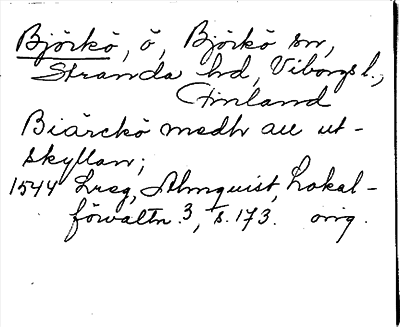 Björkö, ö, Björkö sn,
Stranda hd, Viborgs l.,
Finland
Biärckö medh all ut-
skyllan;
1544 Lreg, Almquist, Lokal-
förvaltn. 3, s. 173. orig.